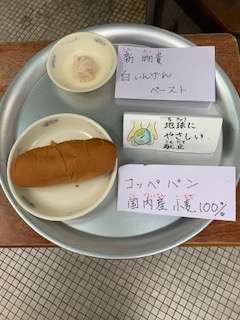 新発売
白いんげん
ペースト
地球に
やさしい
献立
コッペパン
国内産小麦100%